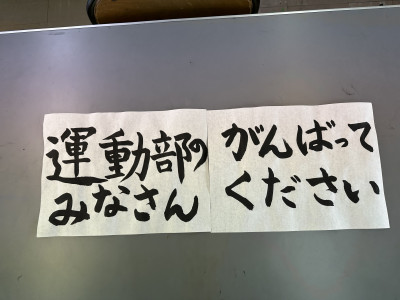 運動部の
みなさん
がんばって
ください